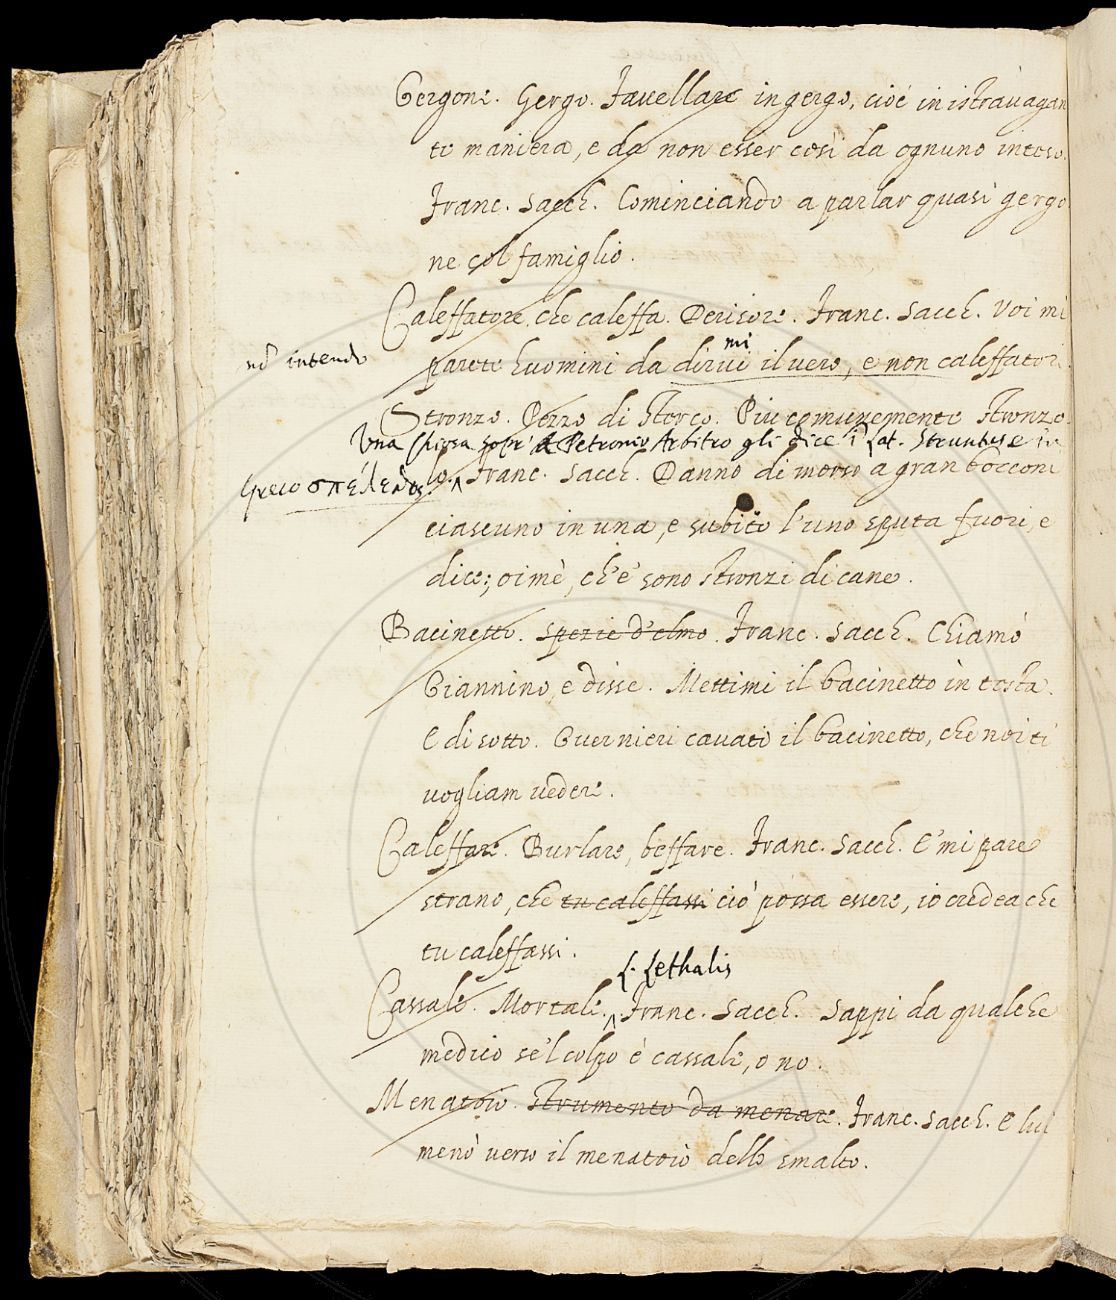 Gergone. Gergo. Fauellare in gergo, cioè in istrauagan
te maniera, e da non esser così da ognuno inteso.
Franc. Sacch. Cominciando a parlar quasi gergo
ne col famiglio.
Caleffatore che caleffa. Derisore. Franc. Sacch. Voi mi
nō intendo
mi
parete huomini da dirui il vero, e non caleffatori.
Stronzo. Pezzo di sterco. Piu comunemente stronzo
Vna chiosa sopr' a Petronio Arbitro gli dice ī Lat. Struntus e in
Greco σπέλεθος
lo. Franc. Sacch. Danno di morso a gran bocconi
ciascuno in una, e subito l'uno sputa fuori, e
dice; oimè, ch'e' sono stronzi di cane.
Bacinetto. Spezie d'elmo. Franc. Sacch. Chiamò
Giannino, e disse. Mettimi il bacinetto in testa.
E di sotto. Guernieri cauati il bacinetto, che noi ti
vogliam uedere.
Caleffare. Burlare, beffare. Franc. Sacch. E' mi pare
strano, che tu caleffassi ciò possa essere, io credea che
tu caleffassi.
L. Lethalis
Cassale. Mortale. Franc. Sacch. Sappi da qualche
medico se'l colpo è cassale, o no.
Menatoio. Strumento da menare. Franc. Sacch. E lui
menò verso il menatoio dello smalto.